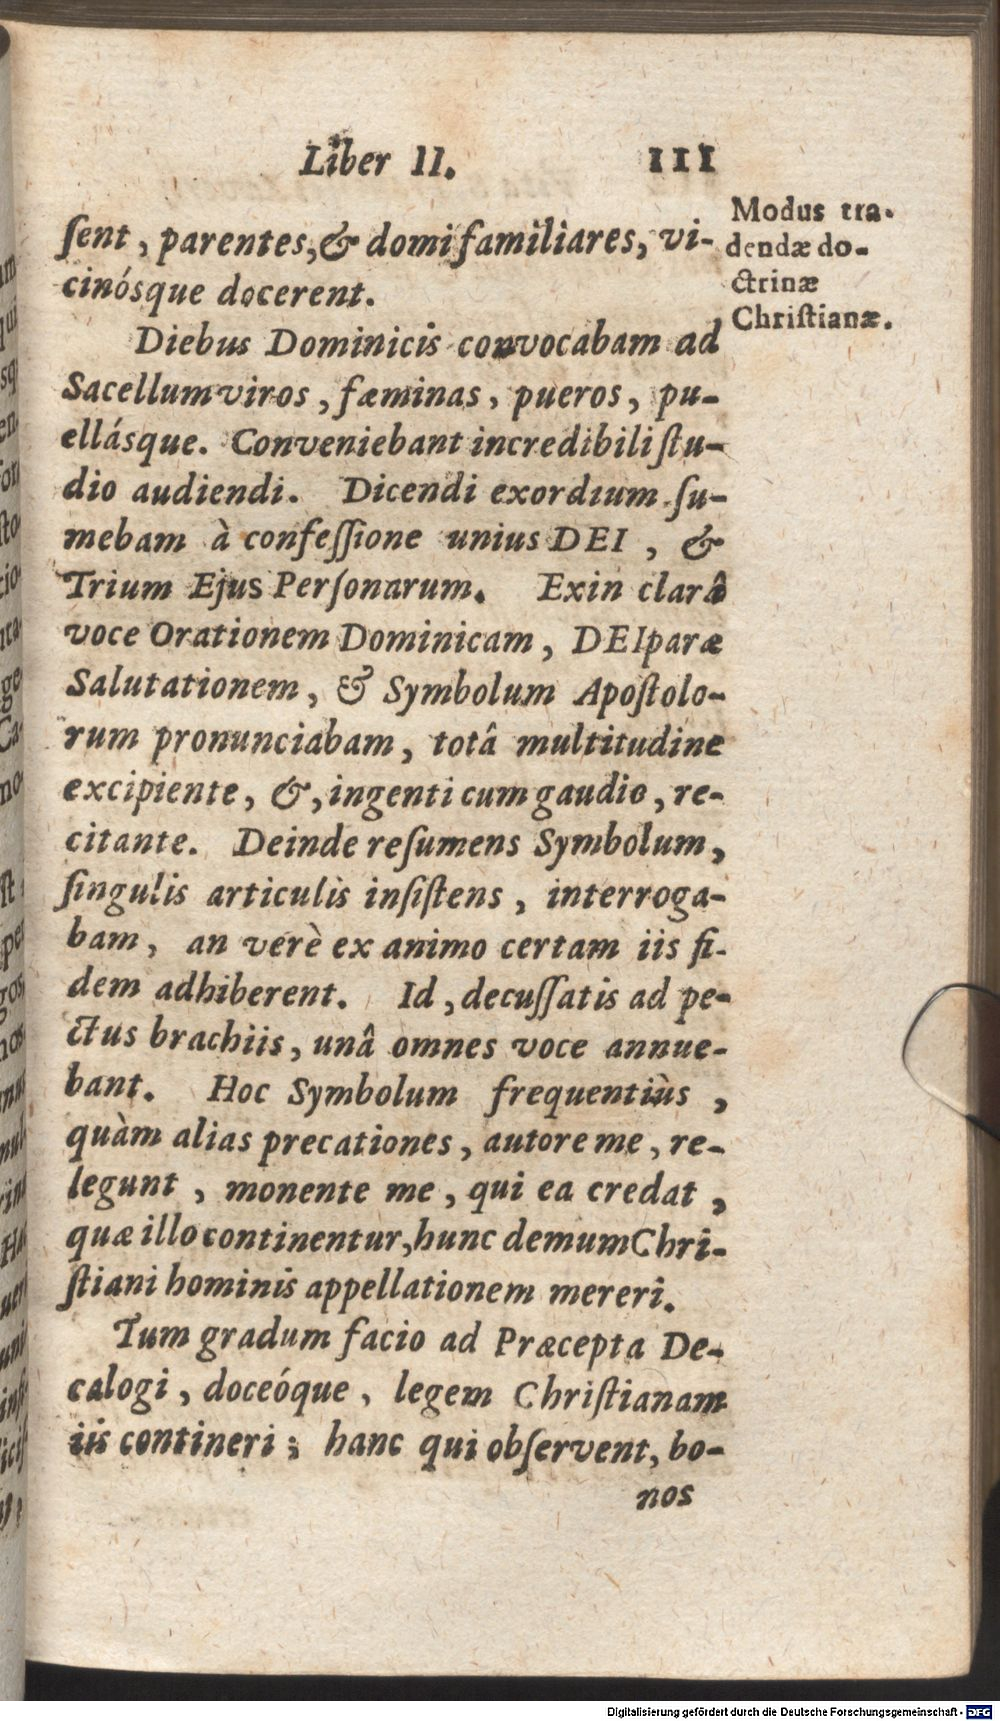 Liber II. 111
Modus tra-
dendæ do-
ctrinæ
Chriſtianæ.
ſent, parentes, & domi familiares, vi-
cinósque docerent.
Diebus Dominicis convocabam ad
Sacellum viros, fæminas, pueros, pu-
ellásque. Conveniebant incredibili ſtu-
dio audiendi. Dicendi exordium ſu-
mebam à confeſſione unius DEI, &
Trium Ejus Perſonarum. Exin clarâ
voce Orationem Dominicam, DEIparæ
Salutationem, & Symbolum Apoſtolo-
rum pronunciabam, totâ multitudine
excipiente, &, ingenti cum gaudio, re-
citante. Deinde reſumens Symbolum,
ſingulis articulis inſiſtens, interroga-
bam, an verè ex animo certam iis fi-
dem adhiberent. Id, decuſſatis ad pe-
ctus brachiis, unâ omnes voce annue-
bant. Hoc Symbolum frequentiùs,
quàm alias precationes, autore me, re-
legunt, monente me, qui ea credat,
quæ illo continentur, hunc demum Chri-
ſtiani hominis appellationem mereri.
Tum gradum facio ad Præcepta De-
calogi, doceóque, legem Chriſtianam
iis contineri; hanc qui obſervent, bo-
nos
Digitalisierung gefördert durch die Deutsche Forschungsgemeinschaft - DFG